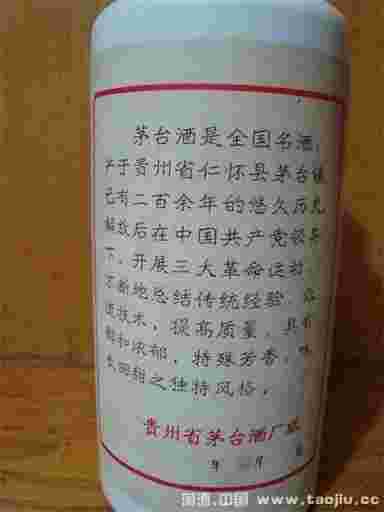 茅台酒是全国名酒，
产于贵州省仁怀县茅台镇
已有二百余年的悠久历史
解放后在中国共产党领导
下，开展三大革命运动
不断地总结传统经验
技术，提高质量，具有
醇和浓郁，特殊芳香，味
长回甜之独特风格，
贵州省茅台酒厂
年 月
国酒.中国 www.taojiu.cc